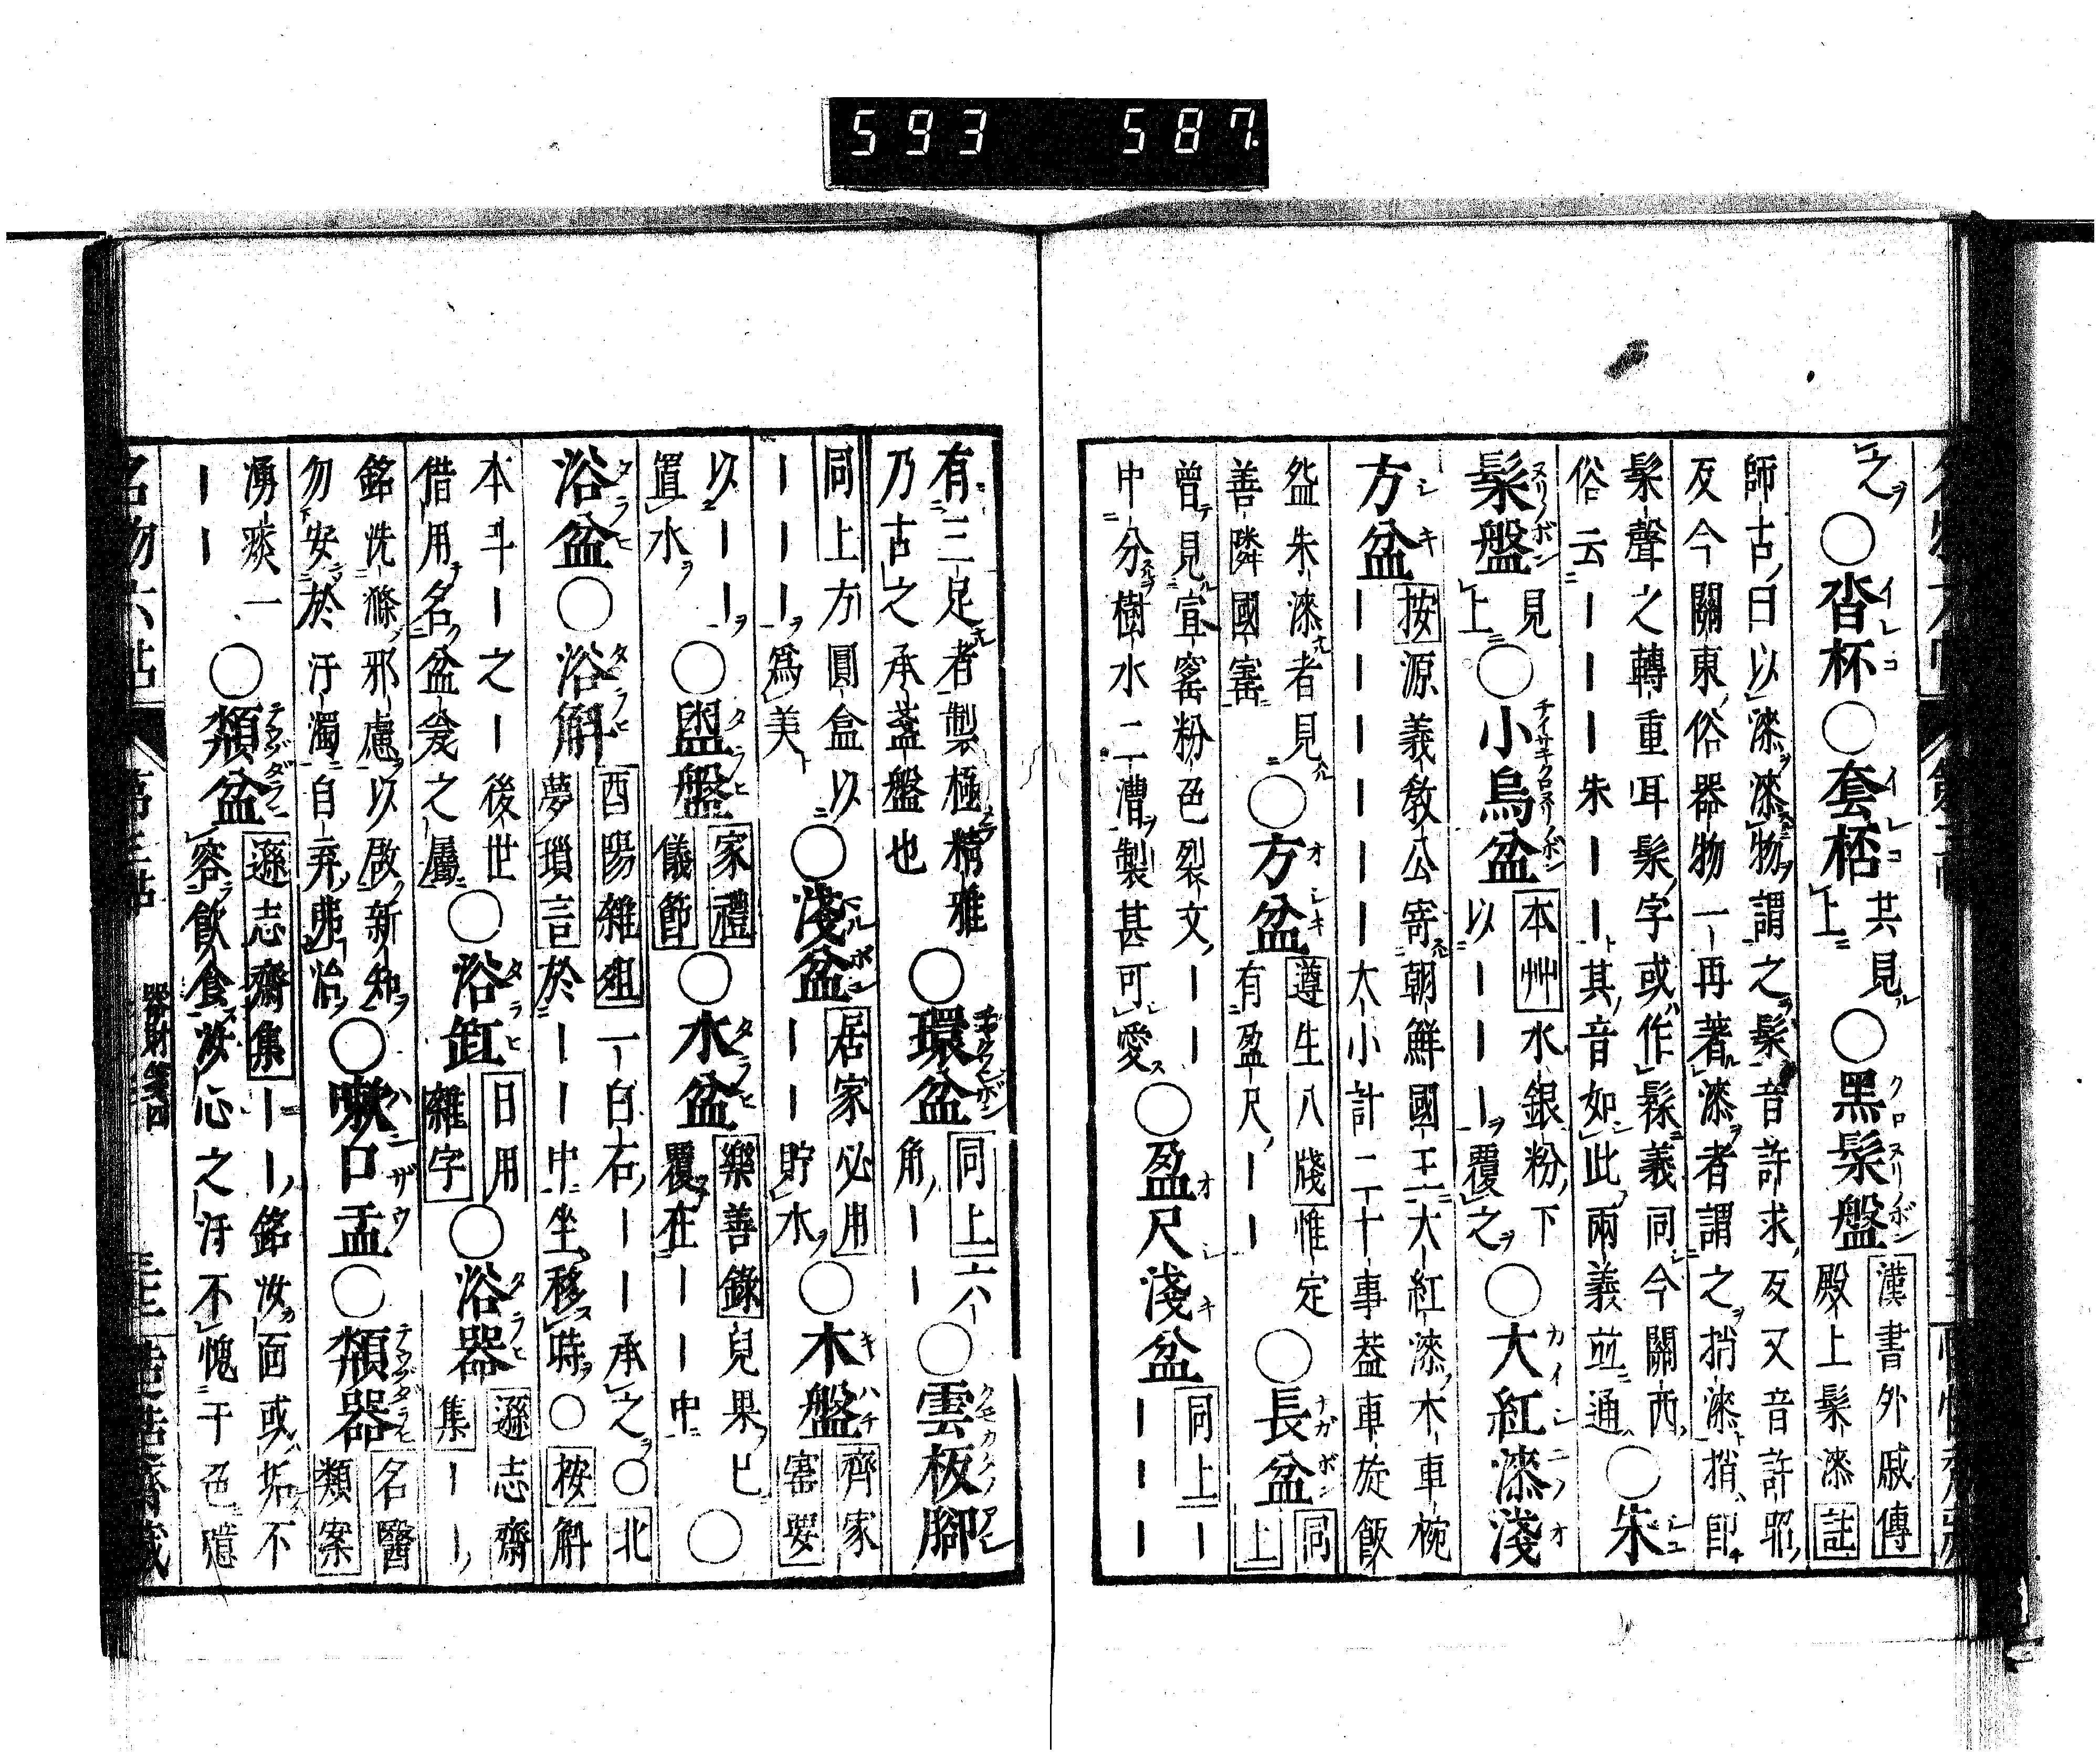 593 587.
之ヲ○沓杯イレコ○套桮イレコ共見ル上ニ○黑髹盤クロヌリボン漢書外戚傳殿上髹漆註
師古曰以漆漆物謂之髹音許求反又音許昭
反今關東俗器物一再著漆者謂之捎漆捎即
髹聲之轉重耳髹字或作䰍義同今關西
俗云ーーー朱ーーー其音如此兩義並通○朱
髹盤ヌリノボン見上○小烏盆チイサキクロヌリノボン本艸水銀粉下以ーーー覆之○大紅漆淺
方盆按源義教公寄朝鮮國王大紅漆木車椀
ーーーーー大小計二十事葢車旋飯
盆朱漆者見善隣國寳○方盆オシキ遵生八牋惟定有盈尺ーー○長盆ナガボン同上
曾見宣窰粉色裂文ーー
中分樹水二漕製甚可愛○盈尺淺盆オシキ同上ーーーーー
有三足者製極精雅
乃古之承盞盤也○環盆同上六角ーー○雲板腳
同上方圓盒以ーーーー爲美○淺盆居家必用ーーー貯水○木盤キハチ齊家寳要
以ーー置水○盥盤タラヒ家禮儀節○水盆タラヒ樂善錄兒果已覆在ーー中○
浴盆タラヒ○浴斛タラヒ酉陽雜俎一白石ーー承之○北夢瑣言於ーー中坐移時○按斛
本斗ー之ー後世
借用名盆瓮之屬○浴缸タラヒ日用雜字○浴器タラヒ遜志齋集ーー
銘洗滌邪慮以啟新知
勿安於汙濁自弃弗治○嗽口盂ハンザウ○頮器名醫類案
湧痰一ーー○頮盆遜志齋集ーー銘汝面或垢不容飲食汝心之汙不愧于色噫
名物六帖 第三帖 器財箋四